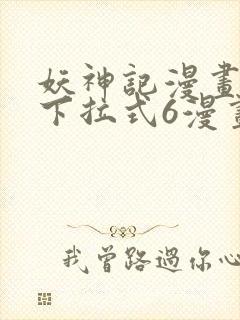 妖神記漫畫
下拉式6漫畫
我曾路過你心